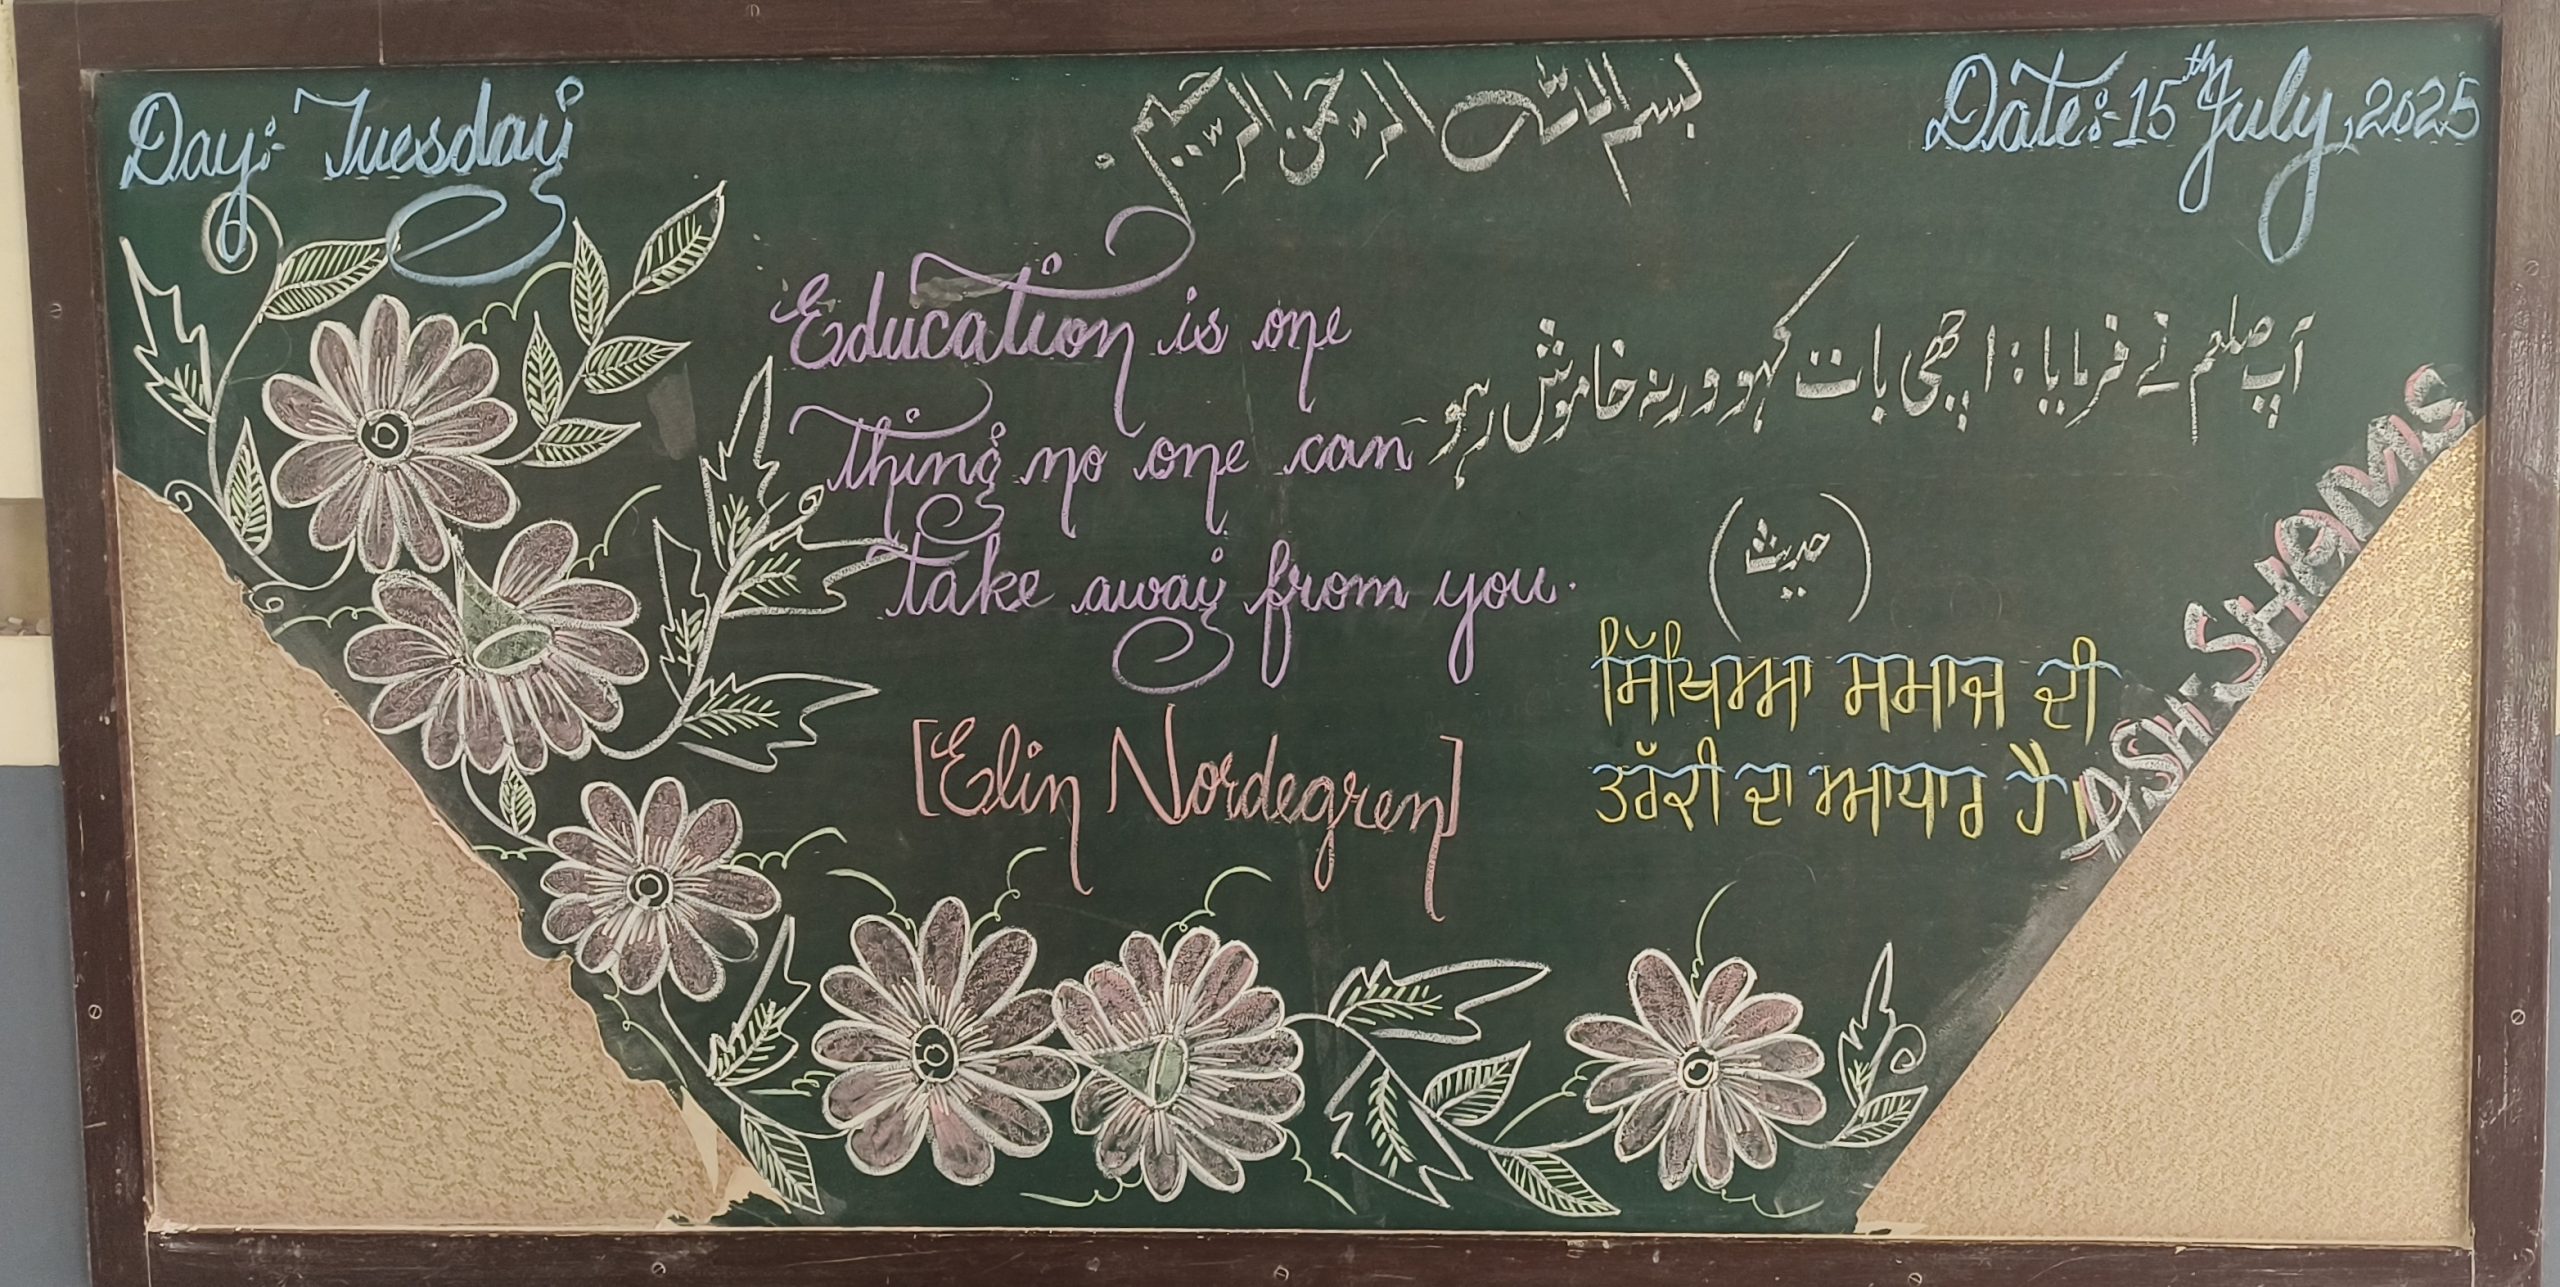 Day:- Tuesday
بسم اللہ الرحمن الرحیم
Date:- 15th July, 2025
Education is one
thing no one can
take away from you.
[Elin Nordegren]
آپ صلعم نے فرمایا: اچھی بات کہو ورنہ خاموش رہو
(حدیث)
ਸਿੱਖਿਆ ਸਮਾਜ ਦੀ
ਤਰੱਕੀ ਦਾ ਆਧਾਰ ਹੈ।
ASH-SHAMS